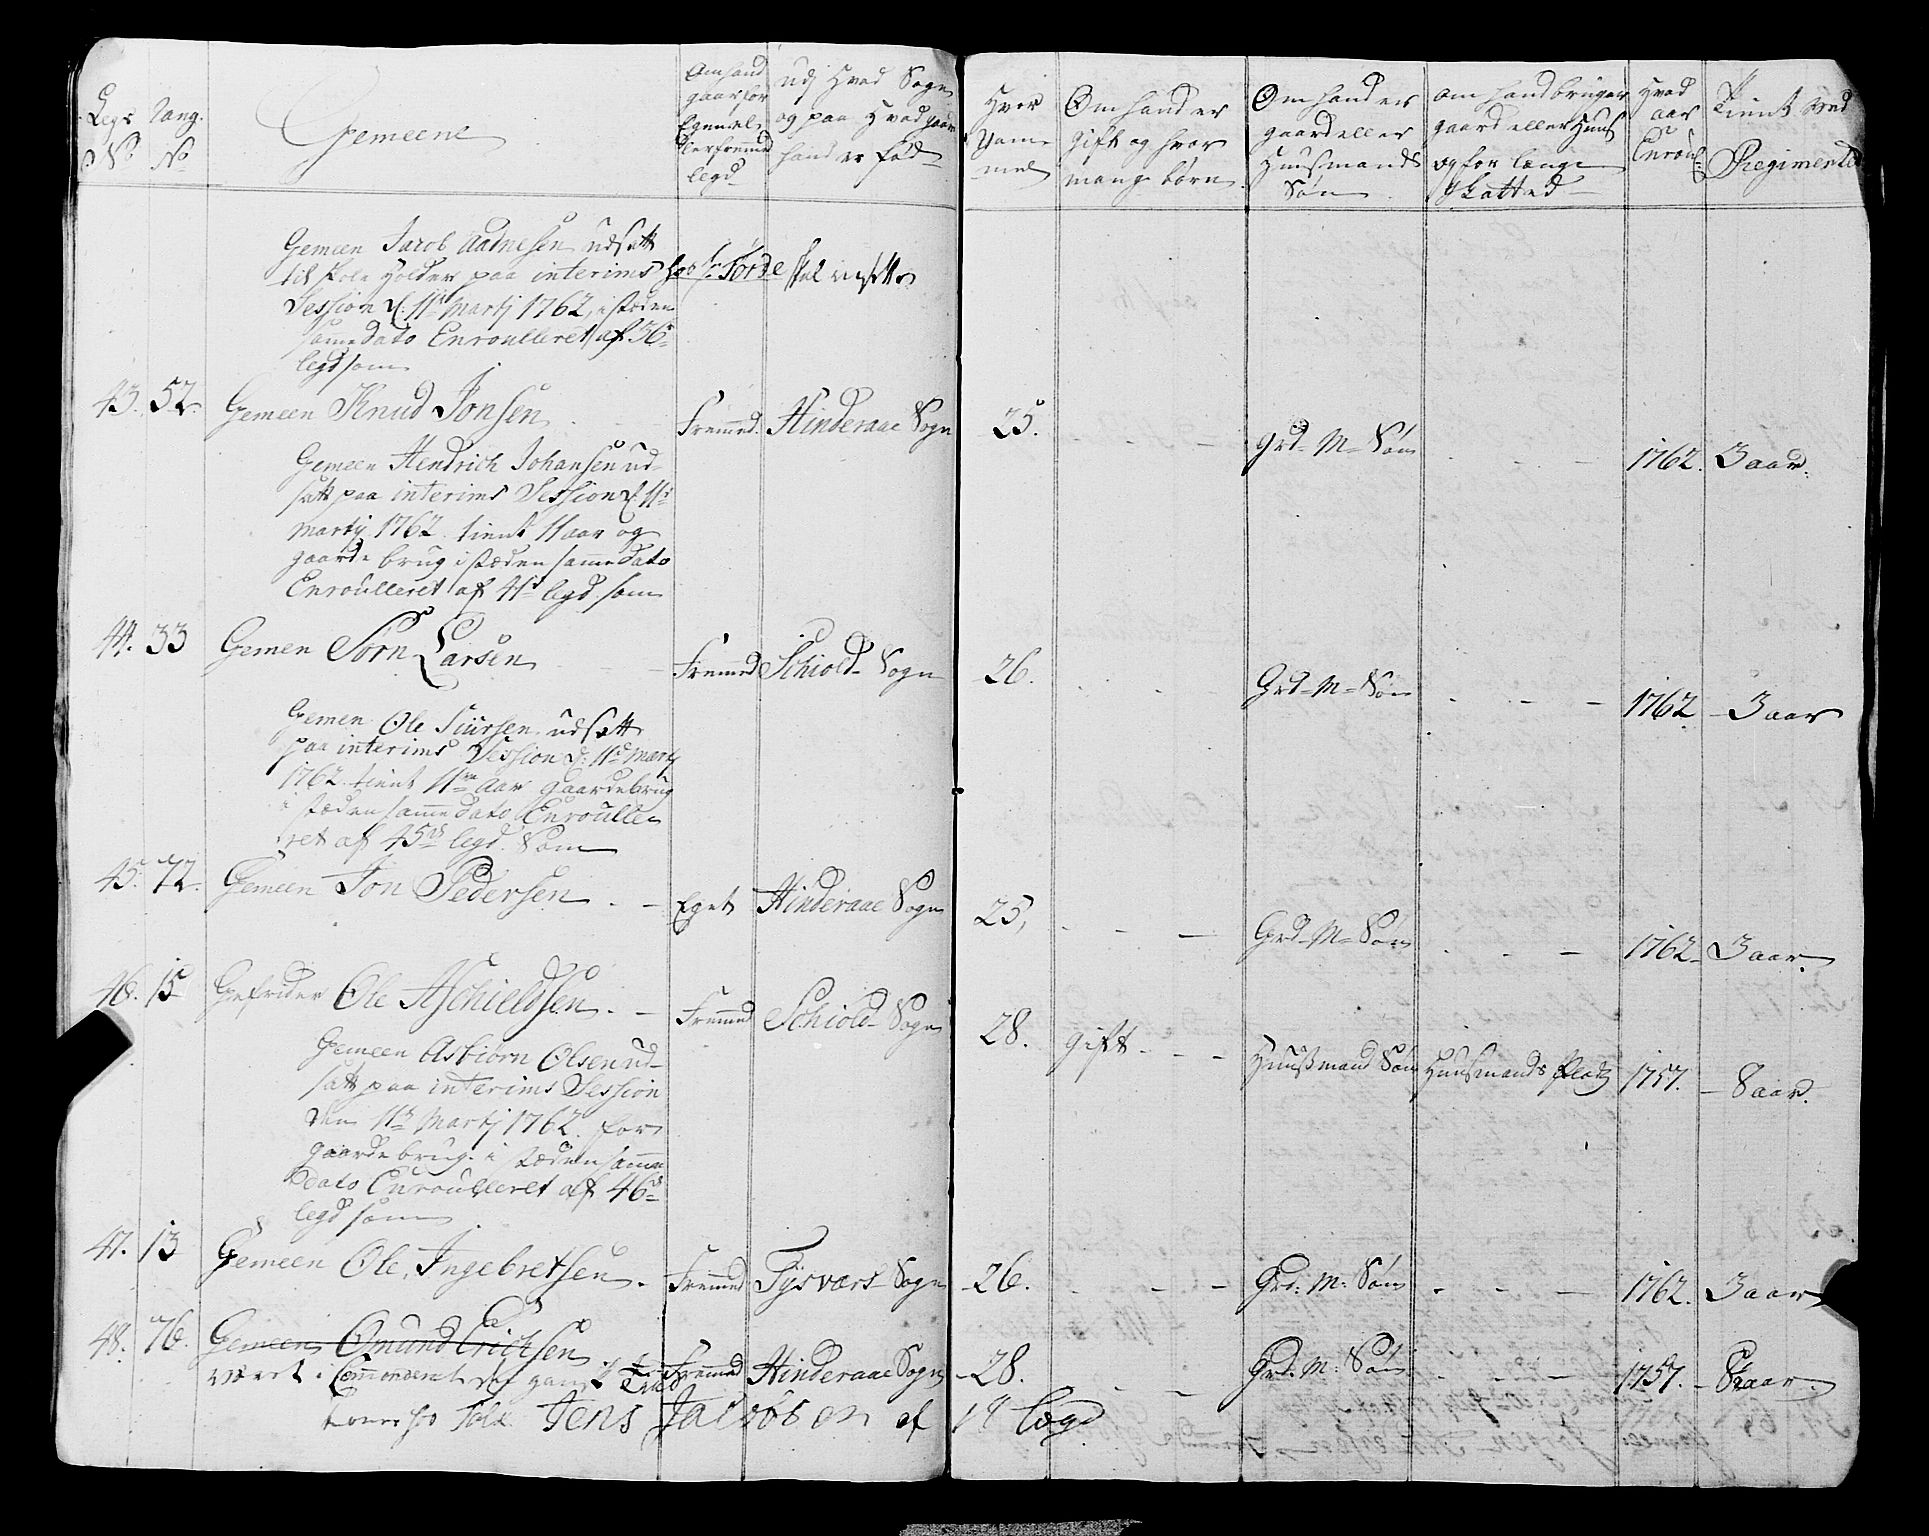 Legs No
Rang. No
Gemeene
Om hand gaar for Eget eller fremmed legd
udj Hvad Sogn og paa Hvad gaard hand er fød
Hvor Gammel
Om hand er gift og hvor mange børn
Om hand er gaard eller Huusmands Søn
Om hand bruger gaard eller Huus og for længe skatted
Hvad aar Enroul:
Tient ved Regimented
Gemeen Jacob Aadnesen udsatt
til skole Holder paa interims
Session d. 11te Martj 1762, i stæden
samme Dato Enroulleret af 36te
legd som
43. 52. Gemeen Knud Jonsen Fremmed. Hinderaae Sogn 25. Grd-M-Søn 1762. 3 aar.
Gemeen Hendrich Johansen ud-
satt paa interims Session d. 11te
Martj 1762 tient 11 aar og
gaarde brug i stæden samme dato
Enroulleret af 41de legd som
44. 33 Gemen Sørn Larsen Fremmed Schiold Sogn 26. Grd-M-Søn 1762 3 aar
Gemen Ole Siursen udsatt
paa interims Session d: 11te Martj
1762 tient 11 aar gaardebrug
i stæden samme dato Enroulle
ret af 45de legd. Som
45. 72. Gemeen Jon Pedersen Eget Hinderaae Sogn 25, Grd-M-Søn 1762 3 aar.
46. 15 Gefrider Ole Aschieldsen Fremmed Schiold Sogn 28. gift Huusmand Søn Huusmands Platz 1757. 8 aar.
Gemeen Asbiørn Olsen ud-
satt paa interims Session
den 11te Martj 1762. for
gaarde brug i stæden samme
dato Enroulleret af 46de
legd som
47. 13 Gemeen Ole Ingebretsen Fremmed Tysvars Sogn 26. Grd: M: Søn 1762. 3 aar
48. 76. Gemeen Omund Erichsen Fremmed Hinderaae Sogn 28. Grd: M: Søn 1757. 8 aar.
vært i Commonderet
Jens Jacobsen af 14 Lægd